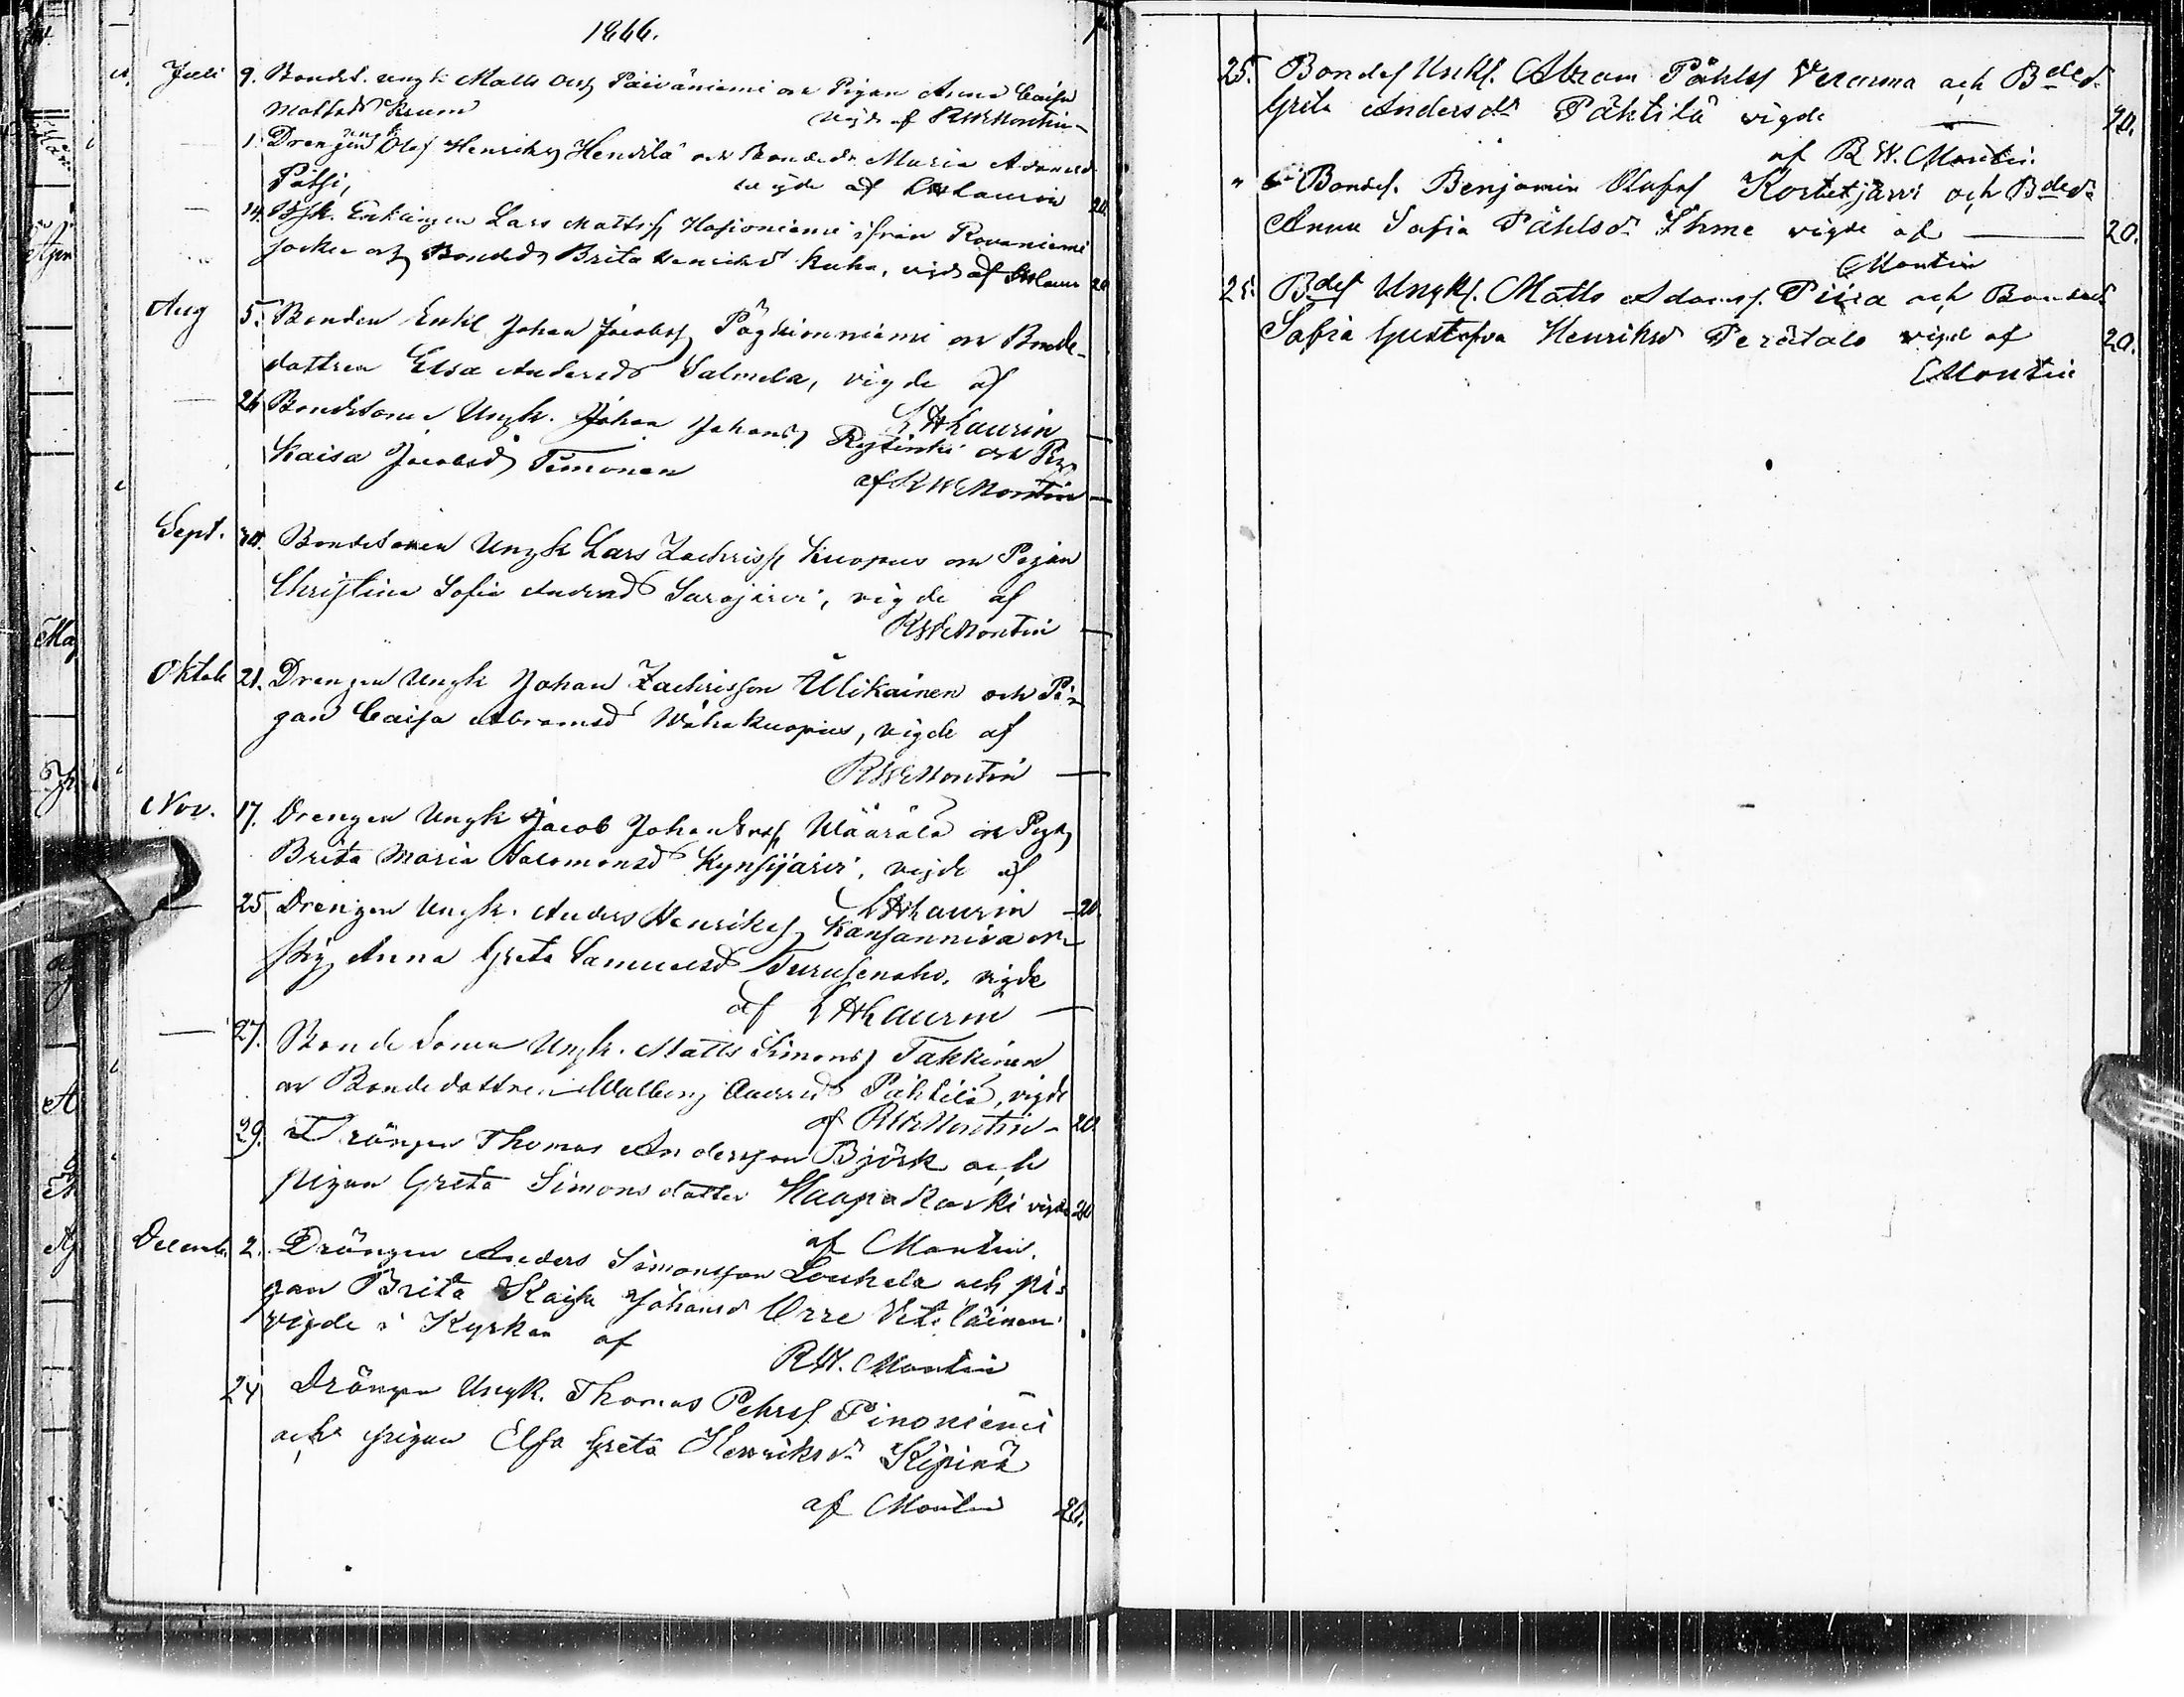 1866.
Juli 9. Bondes. ungk Matts Olss Päiväniemi och Pigan Anna Caisa
Mattsd Krum vigde af RWMontin
1. Drengen ungk Olof Henrikss Hendilä och Bonded. Maria Adamsd
Pätsi, wigde af LHLaurin 20.
14. Lars Mattss Hosioniemi ifrån Rovaniemi
socken och Bonded Brita Henriksd Kuha, vigd af LHLaurin 20
Aug 5. Bonden Enkl Johan Jacobss Pöykiönniemi och Bonde-
dottren Elsa Andersd Salmela, vigde af
LHLaurin
26 Bondesonen Ungk. Johan Johanss Rytinki och Pig
Kaisa Jacobsd Timonen
af RWMontin
Sept. 30. Bondesonen Ungk Lars Zachriss Kuopus och Pigan
Christina Sofia Andersd Sarajärvi, vigde af
RWMontin
Oktob 21. Drengen Ungk Johan Zachrisson Ulikainen och Pi-
gan Caisa Abramsd Wähäkuopus, vigde af
RWMontin
Nov. 17. Drengen Ungk Jacob Johansson Määrälä och Pig
Brita Maria Salomonsd Kynsijärvi, vigde af
LHLaurin 20.
25 Drengen Ungk. Anders Henrikss Kansanniva och
Pig Anna Greta Samuelsd Turusenaho, vigde
af LHLaurin
27. Bondesonen Ungk. Matts Simonss Takkinen
och Bondedottren Walborg Andersd Pähtilä, vigde
af RWMontin 20.
29. Drängen Thomas Andersson Björk och
pigan Greta Simonsdotter Haapakoski vigde 20
af Montin.
Decemb. 2. Drängen Anders Simonsson Loukela och pi-
gan Brita Kaisa Johansd Orre
vigde i Kyrkan af
RW. Montin
24 Drängen Ungk. Thomas Pehrss Pinoniemi
och pigan Elsa Greta Henriksdr Kipinä
af Montin 20.
25. Bondes Unkl. Abram Påhlss Veramma och Bded.
Grita Andersdr Pähtilä vigde 20.
af R W. Montin.
" Bondes. Benjamin Olofss Kortetjärvi och Bded.
Anna Sofia Påhlsdr Ihme vigde af 20.
Montin
25. Bdes Ungkl. Matts Adamss. Piira och Bonded
Sofia Gustafva Henriksd Perätalo vigd af 20.
Montin